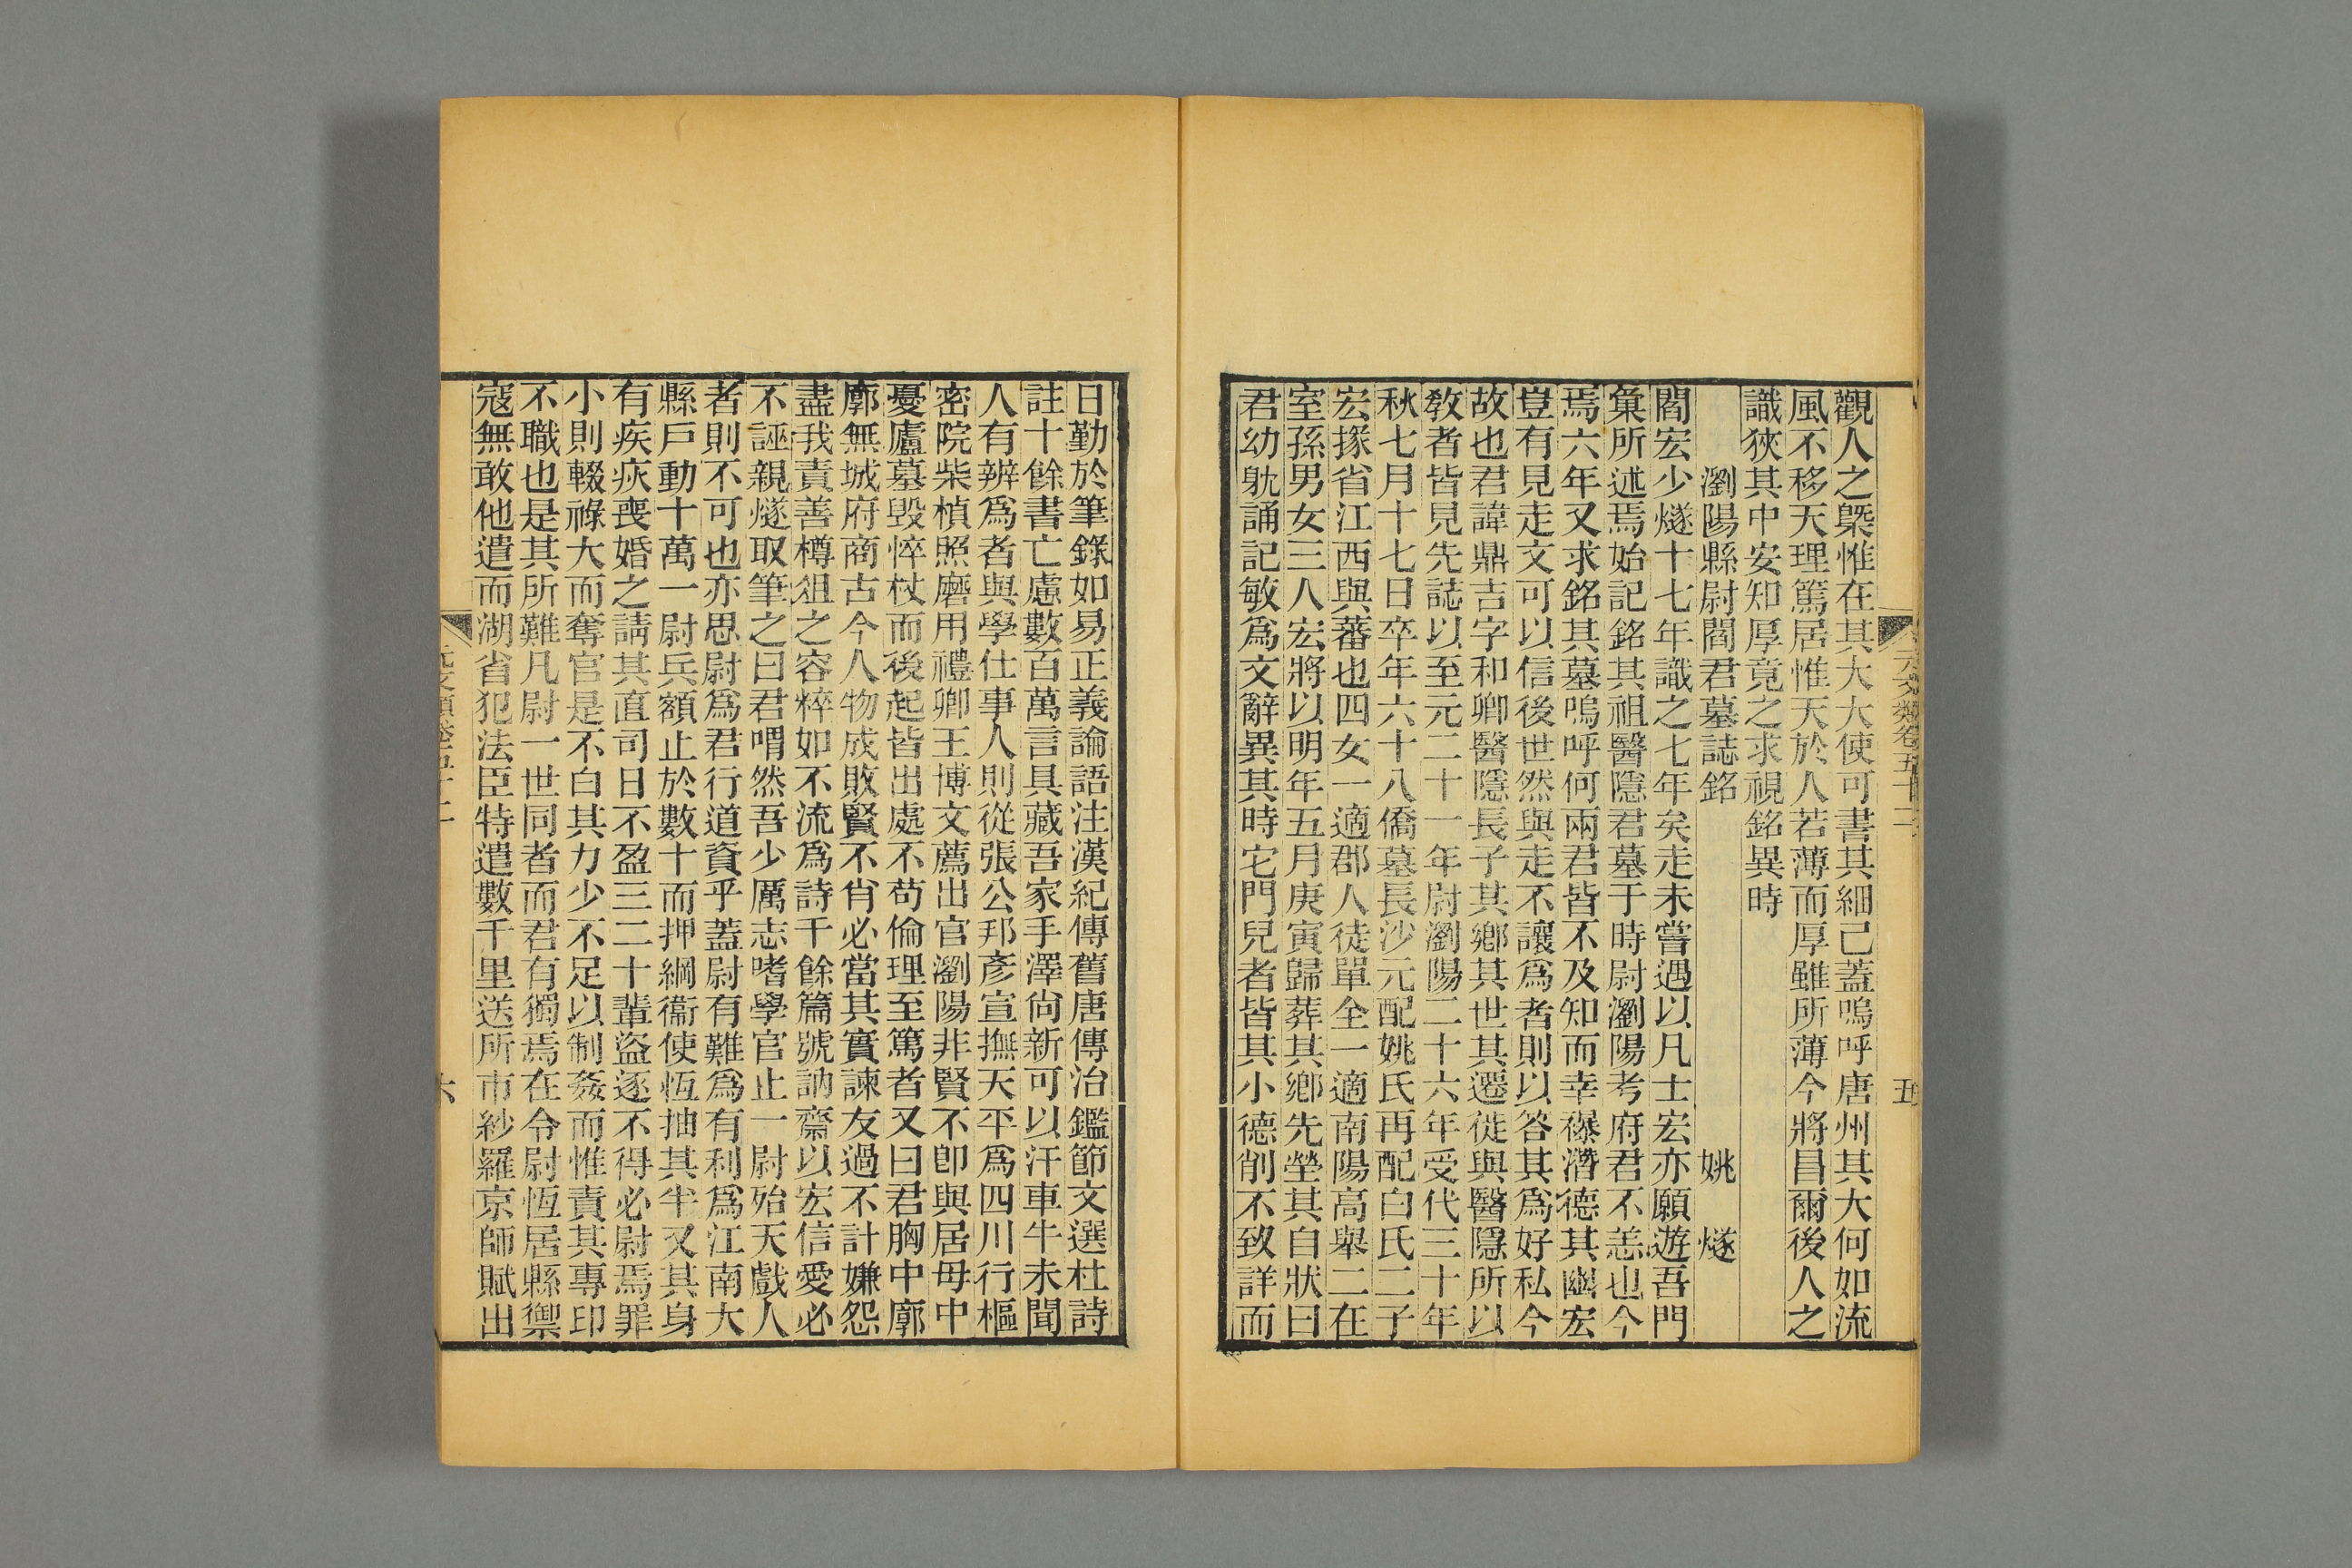 觀人之槩惟在其大大使可書其細己蓋嗚呼唐州其大何如流
風不移天理篤居惟天於人若薄而厚雖所薄今將昌爾後人之
識狹其中安知厚竟之求視銘異時
瀏陽縣尉閻君墓誌銘 姚燧
閻宏少燧十七年識之七年矣走未嘗遇以凡士宏亦願遊吾門
彙所述焉始記銘其祖醫隱君墓于時尉瀏陽考府君不恙也今
焉六年又求銘其墓嗚呼何兩君皆不及知而幸襮潛德其幽宏
豈有見走文可以信後世然與走不讓爲者則以答其爲好私今
故也君諱鼎吉字和卿醫隱長子其鄉其世其遷徙與醫隱所以
敎者皆見先誌以至元二十一年尉瀏陽二十六年受代三十年
秋七月十七日卒年六十八僑墓長沙元配姚氏再配白氏二子
宏掾省江西與蕃也四女一適郡人徒單全一適南陽高舉二在
室孫男女三人宏將以明年五月庚寅歸葬其鄉先塋其自狀曰
君幼躭誦記敏爲文辭異其時宅門兒者皆其小德削不致詳而
元文類卷五十二 五
日勤於筆錄如易正義論語注漢紀傳舊唐傳治鑑節文選杜詩
註十餘書亡慮數百萬言具藏吾家手澤尙新可以汗車牛未聞
人有辨爲者與學仕事人則從張公邦彥宣撫天平爲四川行樞
密院柴楨照磨用禮卿王博文薦出官瀏陽非賢不卽與居母中
憂廬墓毀悴杖而後起皆出處不苟倫理至篤者又曰君胸中廓
廓無城府商古今人物成敗賢不肖必當其實諫友過不計嫌怨
盡我責善樽俎之容粹如不流爲詩千餘篇號訥齋以宏信愛必
不誣親燧取筆之曰君喟然吾少厲志嗜學官止一尉殆天戲人
者則不可也亦思尉爲君行道資乎蓋尉有難爲有利爲江南大
縣戶動十萬一尉兵額止於數十而押綱衞使恆抽其半又其身
有疾疢喪婚之請其直司日不盈三二十輩盜逐不得必尉焉罪
小則輟祿大而奪官是不白其力少不足以制姦而惟責其專印
不職也是其所難凡尉一世同者而君有獨焉在令尉恆居縣禦
寇無敢他遣而湖省犯法臣特遣數千里送所市紗羅京師賦出
六